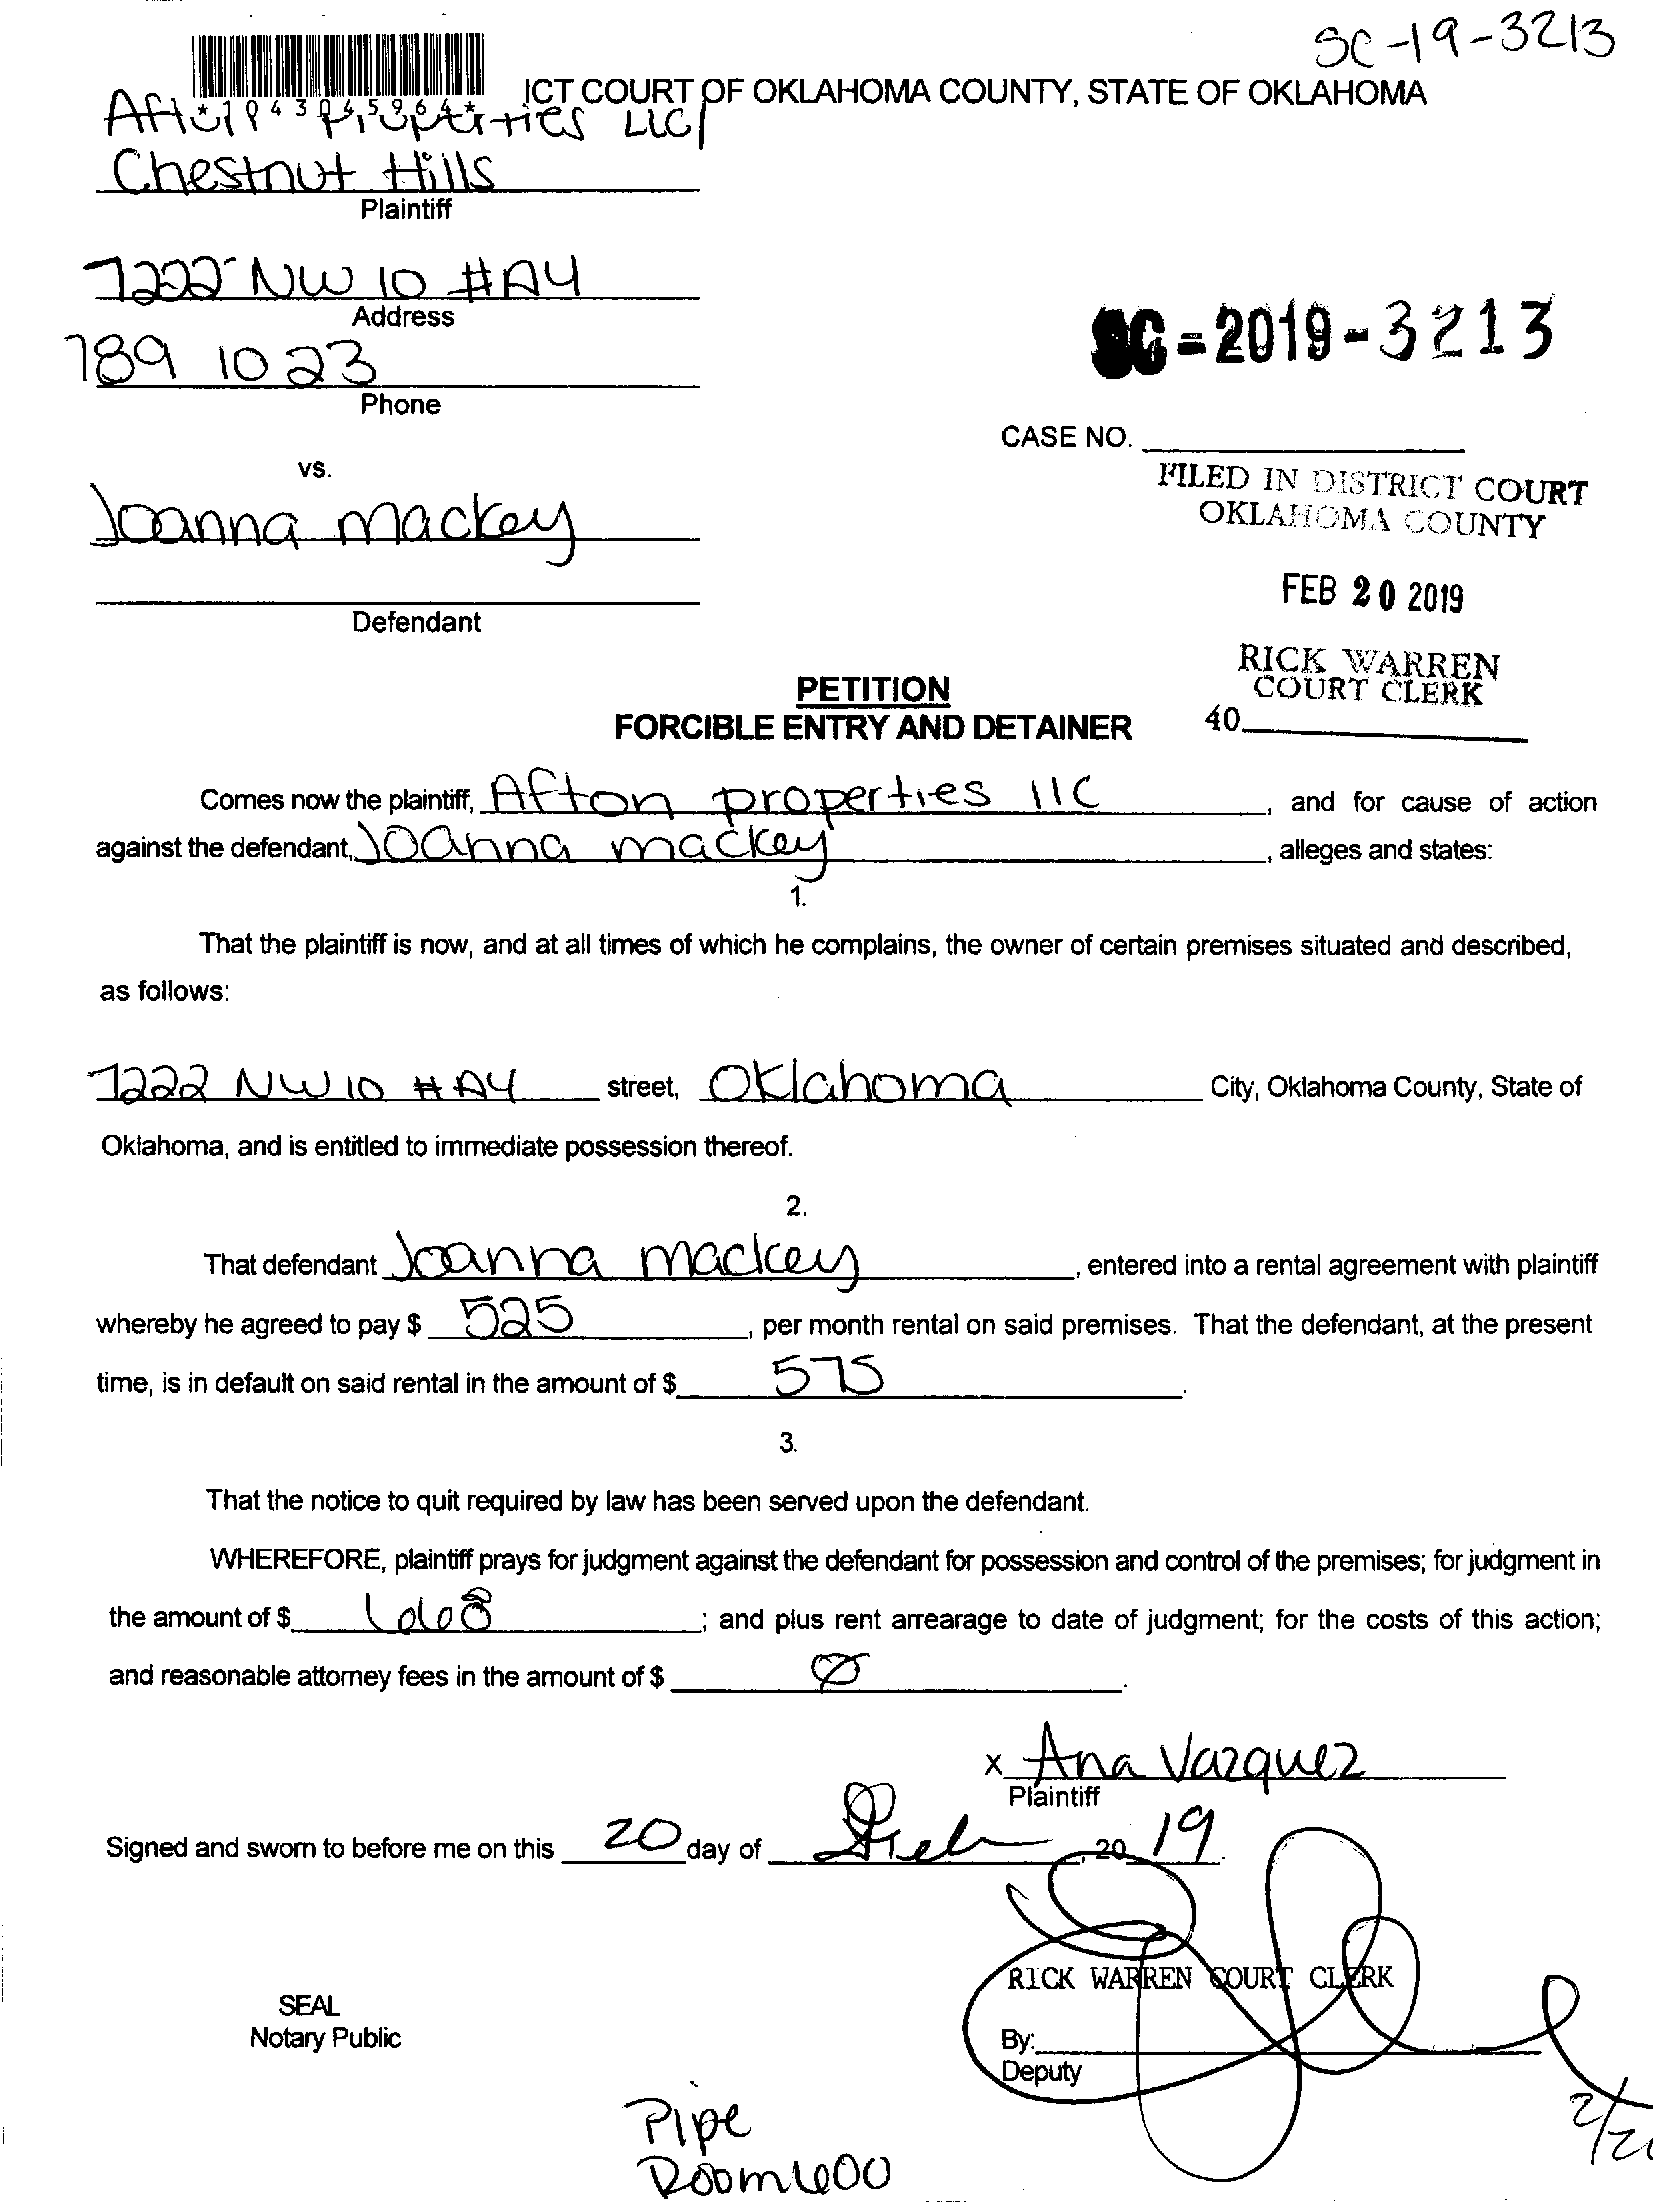 SC-19-3213
*1043045964*
ICT COURT OF OKLAHOMA COUNTY, STATE OF OKLAHOMA
Afton Properties LLC
Chestnut Hills
Plaintiff
7222 NW 10 #A4
Address
789 1023
Phone
SC-2019-3213
CASE NO.
vs.
FILED IN DISTRICT COURT
OKLAHOMA COUNTY
Joanna mackey
FEB 20 2019
Defendant
RICK WARREN
COURT CLERK
40
PETITION
FORCIBLE ENTRY AND DETAINER
Comes now the plaintiff, Afton properties llC, and for cause of action
against the defendant, Joanna mackey, alleges and states:
1.
That the plaintiff is now, and at all times of which he complains, the owner of certain premises situated and described,
as follows:
7222 NW 10 #A4 street, Oklahoma City, Oklahoma County, State of
Oklahoma, and is entitled to immediate possession thereof.
2.
That defendant Joanna mackey, entered into a rental agreement with plaintiff
whereby he agreed to pay $ 525, per month rental on said premises. That the defendant, at the present
time, is in default on said rental in the amount of $ 575.
3.
That the notice to quit required by law has been served upon the defendant.
WHEREFORE, plaintiff prays for judgment against the defendant for possession and control of the premises; for judgment in
the amount of $; and plus rent arrearage to date of judgment; for the costs of this action;
and reasonable attorney fees in the amount of $ Ø.
x Ana Vazquez
Plaintiff
Signed and sworn to before me on this 20 day of Feb, 20 19.
RICK WARREN COURT CLERK
SEAL
Notary Public
By:
Deputy
Pipe
Room 600